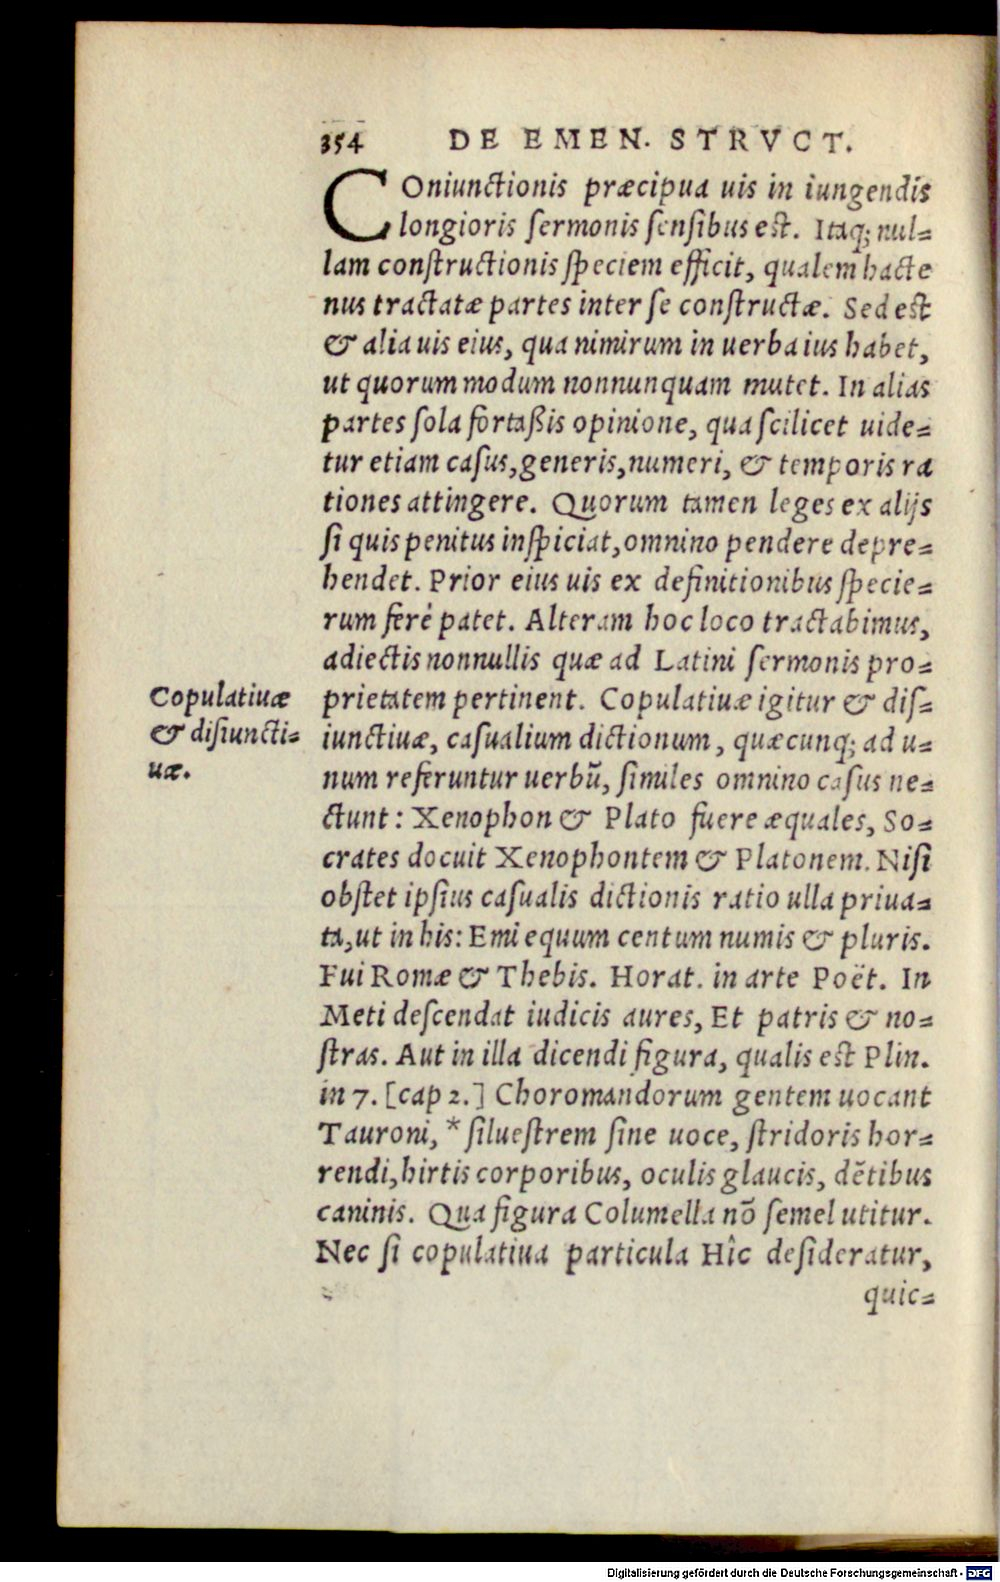 354 DE EMEN. STRVCT.
COniunctionis præcipua uis in iungendis
longioris ſermonis ſenſibus est. Itaq; nul=
lam conſtructionis ſpeciem efficit, qualem hacte
nus tractatæ partes inter ſe conſtructæ. Sed est
& alia uis eius, qua nimirum in uerba ius habet,
ut quorum modum nonnunquam mutet. In alias
partes ſola fortaßis opinione, qua ſcilicet uide=
tur etiam caſus, generis, numeri, & temporis ra
tiones attingere. Quorum tamen leges ex alijs
ſi quis penitus inſpiciat, omnino pendere depre=
hendet. Prior eius uis ex definitionibus ſpecie=
rum ferè patet. Alteram hoc loco tractabimus,
adiectis nonnullis quæ ad Latini ſermonis pro=
prietatem pertinent. Copulatiuæ igitur & diſ=
iunctiuæ, caſualium dictionum, quæcunq; ad u=
num referuntur uerbũ, ſimiles omnino caſus ne=
ctunt: Xenophon & Plato fuere æquales, So=
crates docuit Xenophontem & Platonem. Niſi
obſtet ipſius caſualis dictionis ratio ulla priua=
ta, ut in his: Emi equum centum numis & pluris.
Fui Romæ & Thebis. Horat. in arte Poët. In
Meti deſcendat iudicis aures, Et patris & no=
ſtras. Aut in illa dicendi figura, qualis est Plin.
in 7. [cap 2.] Choromandorum gentem uocant
Tauroni, * ſilueſtrem ſine uoce, ſtridoris hor=
rendi, hirtis corporibus, oculis glaucis, dẽtibus
caninis. Qua figura Columella nõ ſemel utitur.
Nec ſi copulatiua particula Hîc deſideratur,
quic=
Copulatiuæ
& diſiuncti=
uæ.
Digitalisierung gefördert durch die Deutsche Forschungsgemeinschaft - DFG